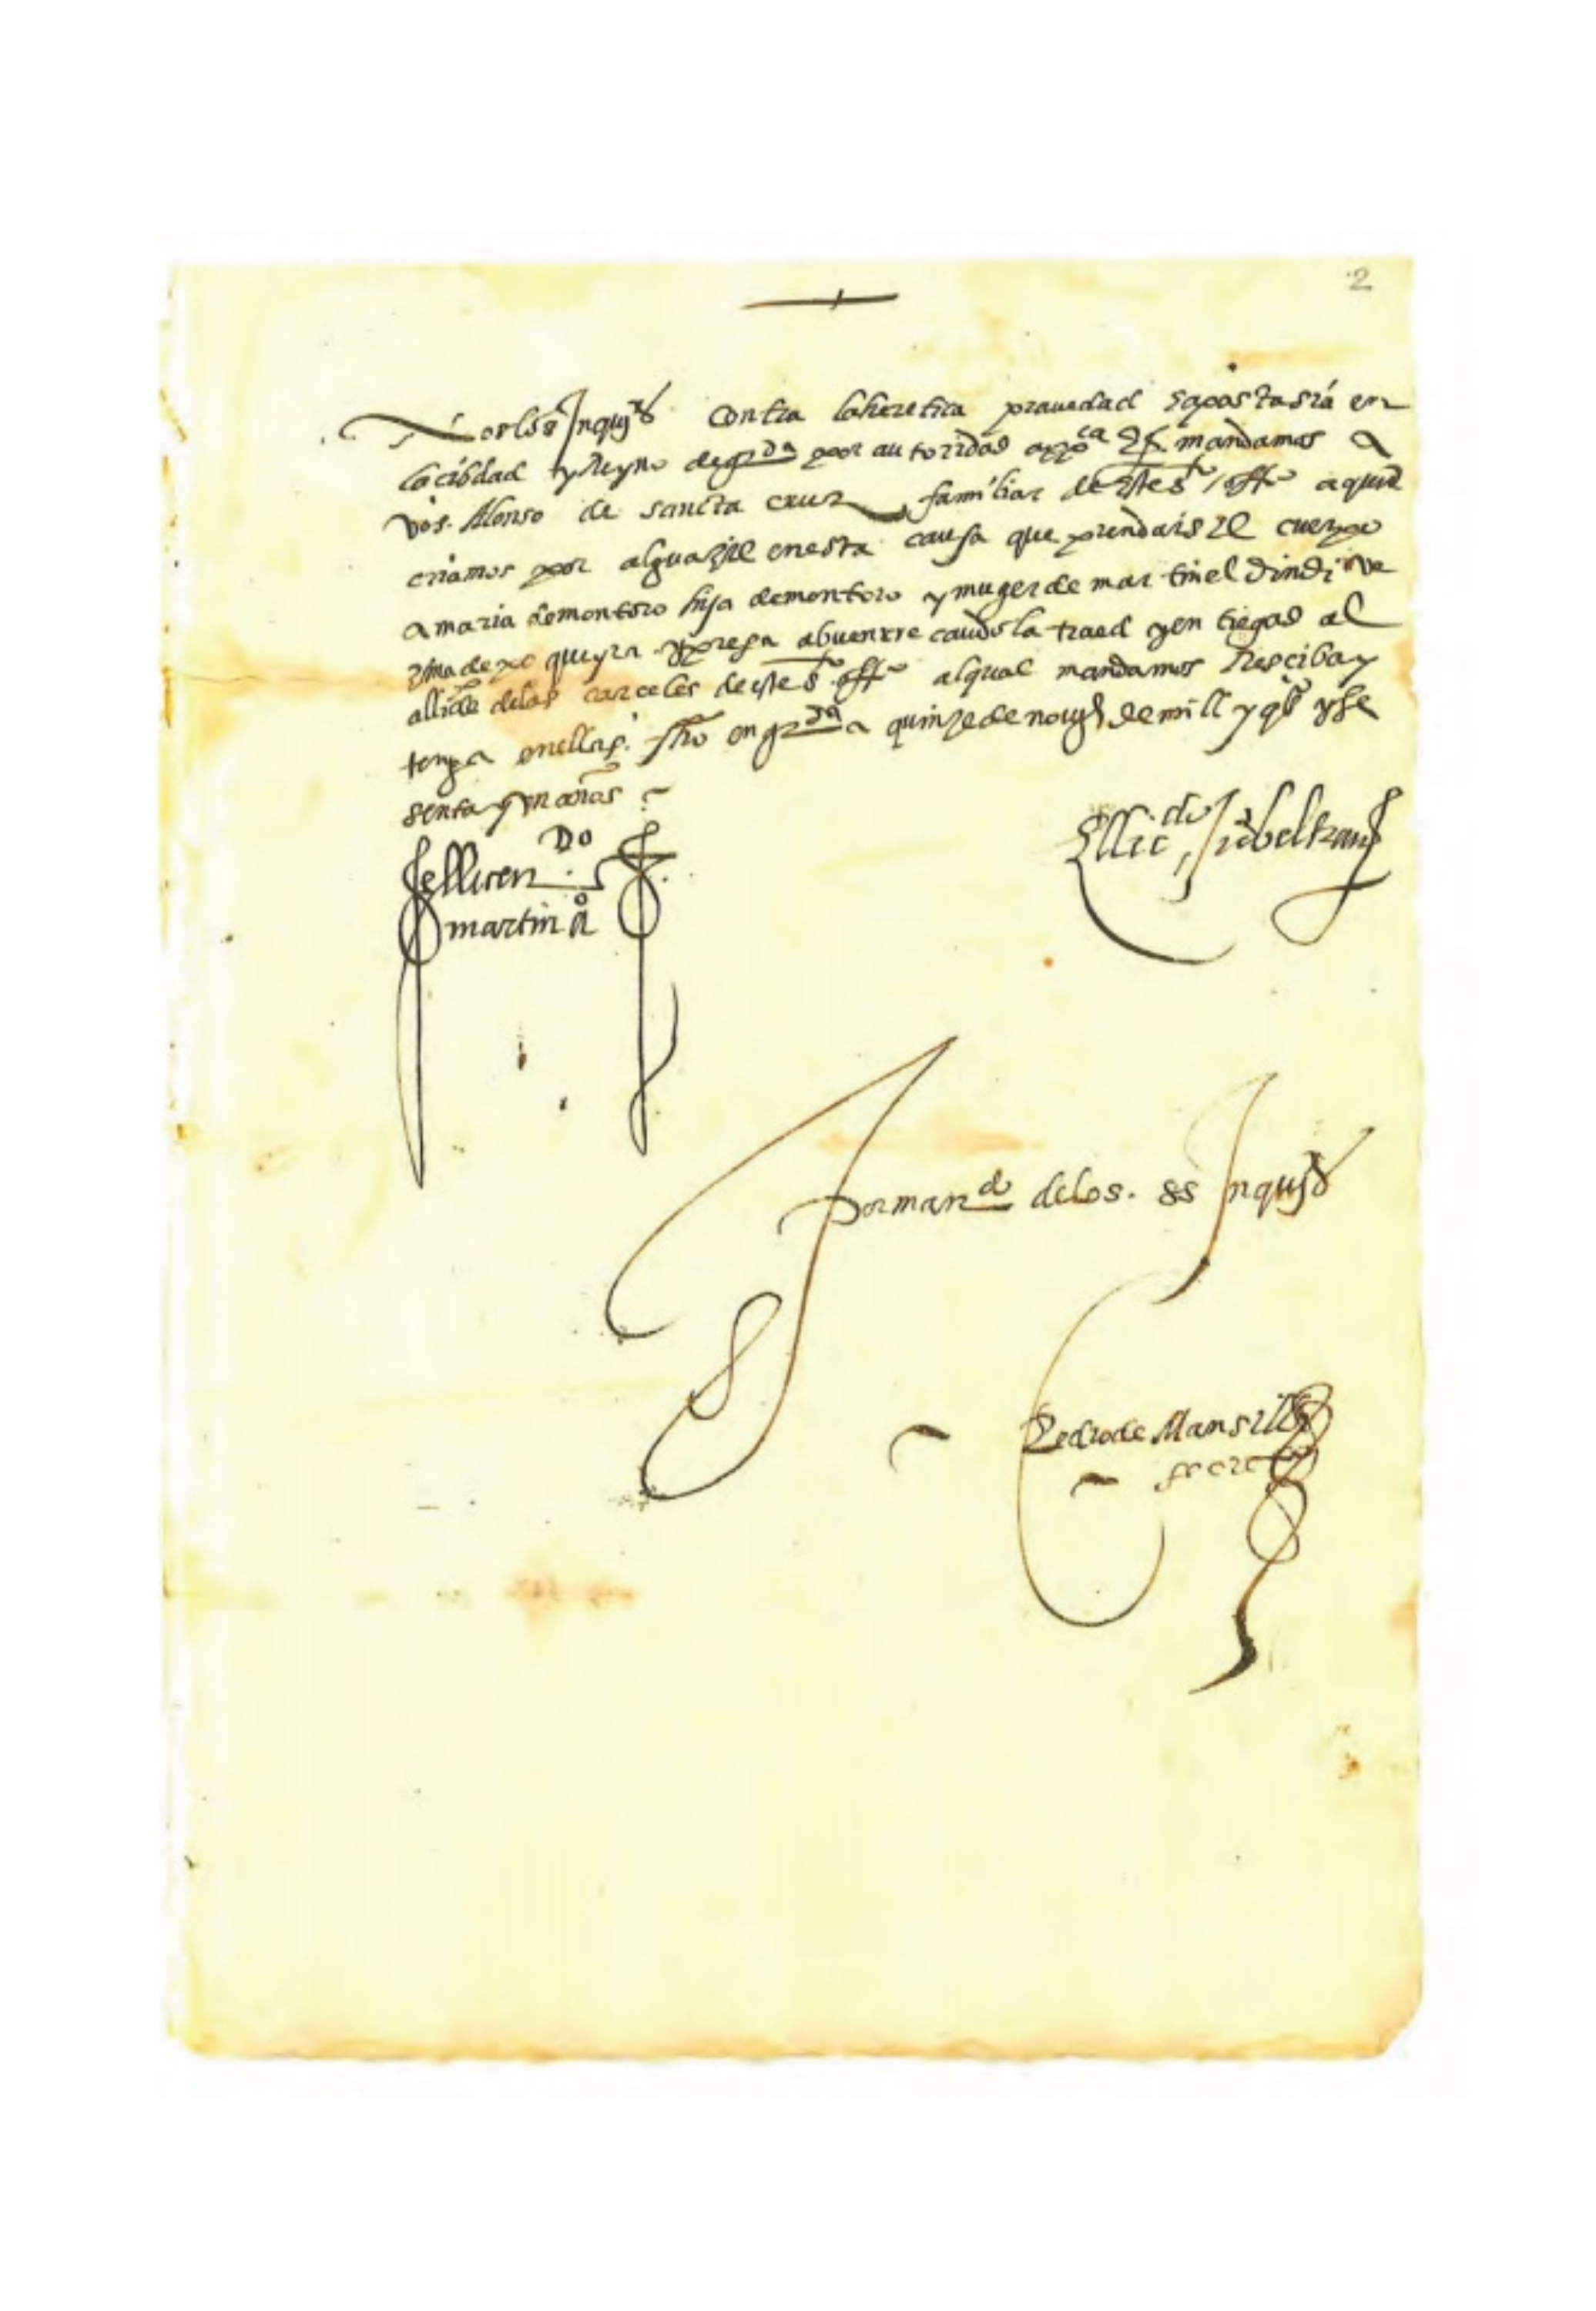 2
Nos los Inquisres contra la heretica prauedad & apostasia en
la cibdad y Reyno de grda por autoridad appca &c mandamos a
vos. Alonso de sancta cruz familiar de este sto offo a quie
criamos por alguazil en esta causa que prendais el cuerpo
a maria de montoro hija de montoro y muger de martin el dindi ve
zina de y presa a buen recaudo la traed y entregad al
allde de las carceles de este sto offo al qual mandamos Resciba y
tenga en ellas. fho en grda a quinze de noue de mill y qos y se
senta y vn años
El licendo
martin Ao
El licdo Jo beltran
Por mando de los. ss Inquisres
Pedro de Mansilla
secreto